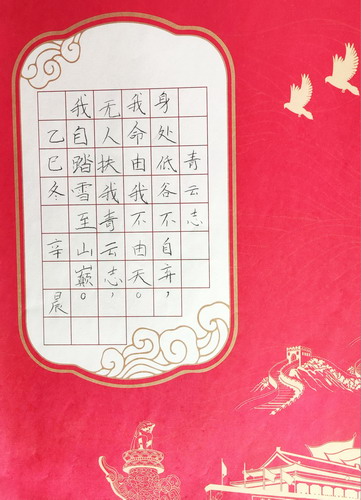 青云志
身处低谷不自弃，
我命由我不由天。
无人扶我青云志，
我自踏雪至山巅。
乙巳冬 辛晨